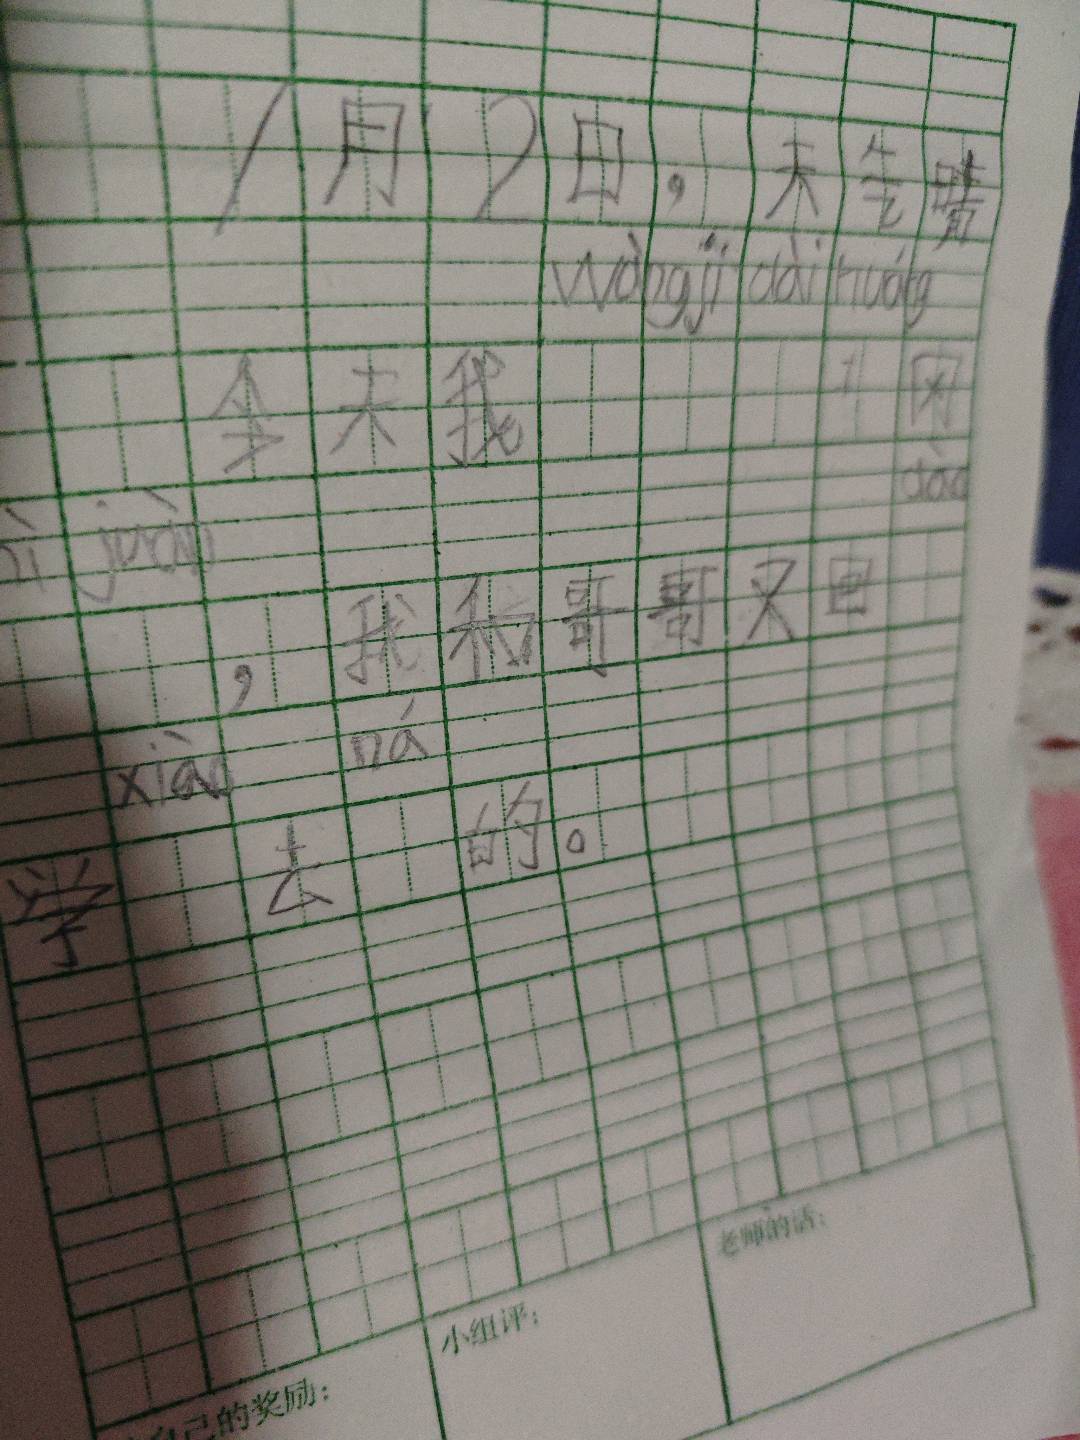 1月2日，天气晴
wàng jì dài huáng
今天我
dào
juàn
，我和哥哥又回
xiào ná
学 去 的。
老师的话：
小组评：
自己的奖励：